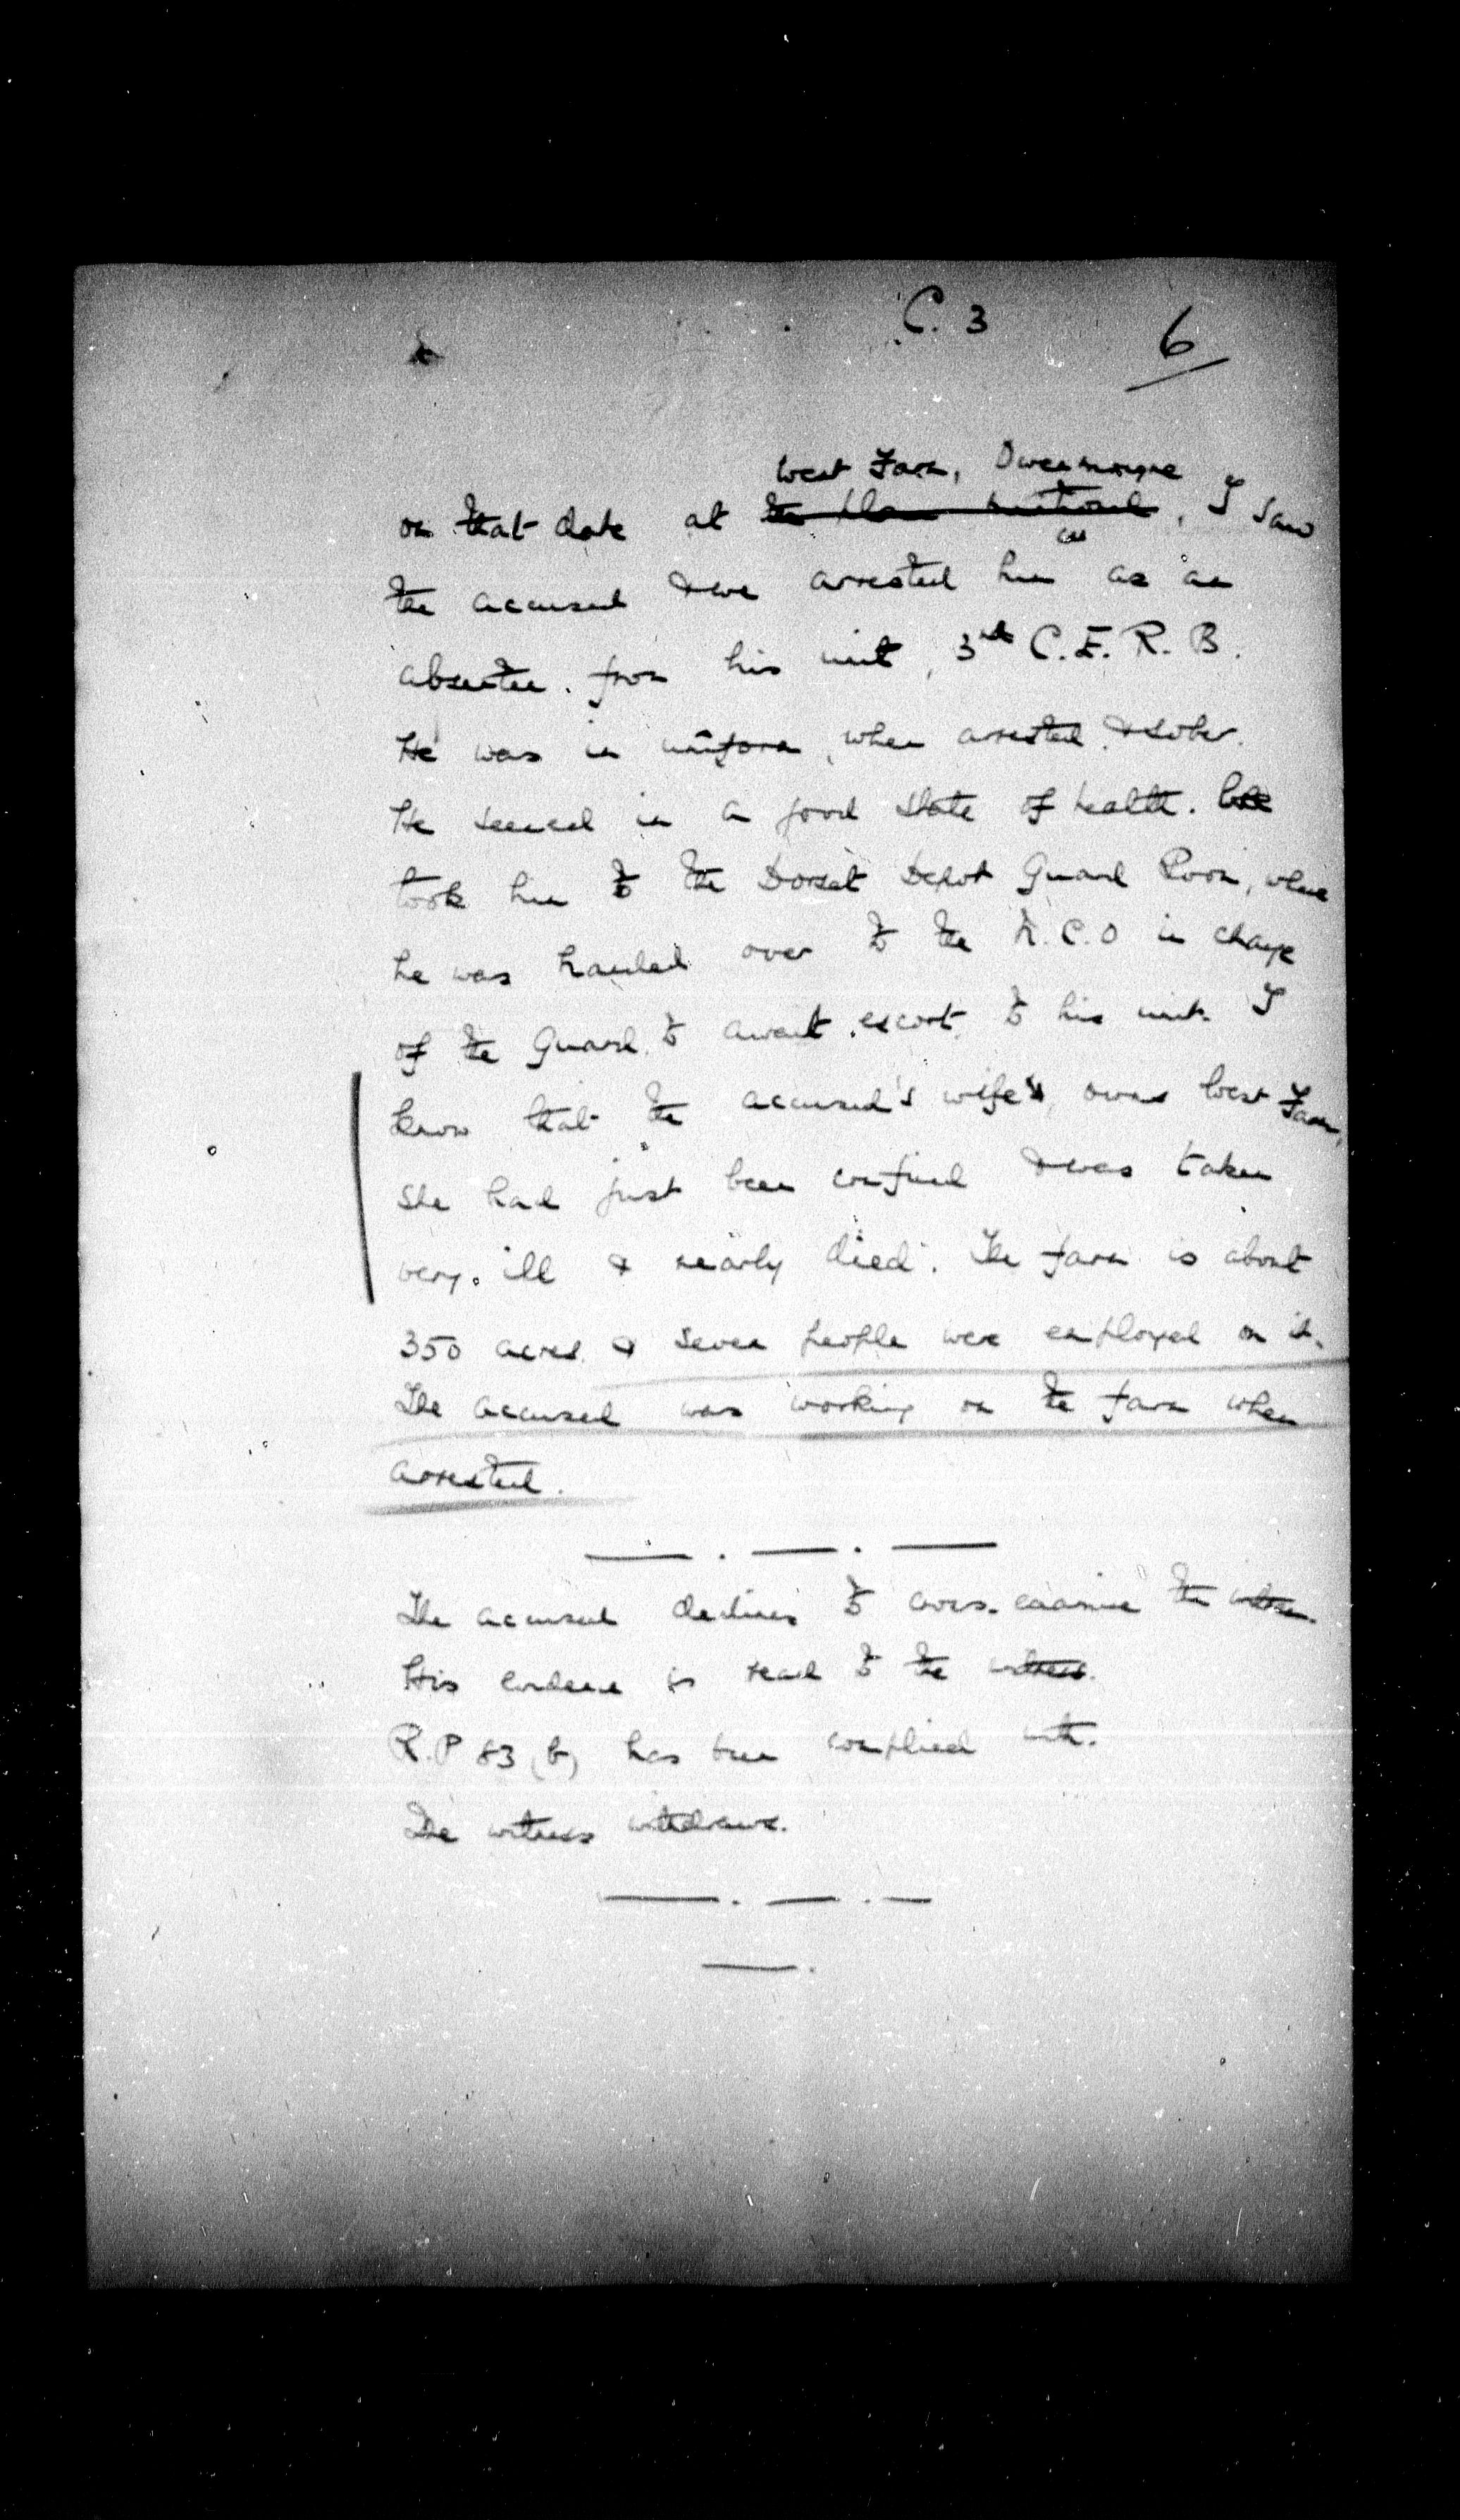 C. 3
6
West Farm, Owermoigne
on that date at the place mentioned, I saw
the accused & we arrested him as an
absentee from his unit, 3rd C.E.R.B.
He was in uniform, when arrested & sober.
He seemed in a good state of health. We
took him to the Dorset Depot Guard Room, where
he was handed over to the N.C.O in charge
of the Guard to await escort to his unit. I
know that the accused's wife's owns West Farm,
She had just been confined & was taken
very ill & nearly died. The farm is about
350 acres & seven people were employed on it.
The accused was working on the farm when
arrested.
The accused declines to cross-examine the witness.
His evidence is read to the witness.
R.P 83 (b) has been complied with.
The witness withdraws.